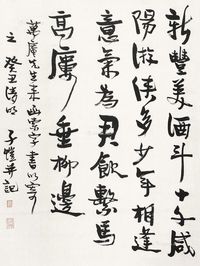 新豐美酒斗十千咸
陽游俠多少年相逢
意氣為君飲繫馬
高樓垂柳邊
萬屋先生来函索字書以寄
之 癸丑清明 子愷并記